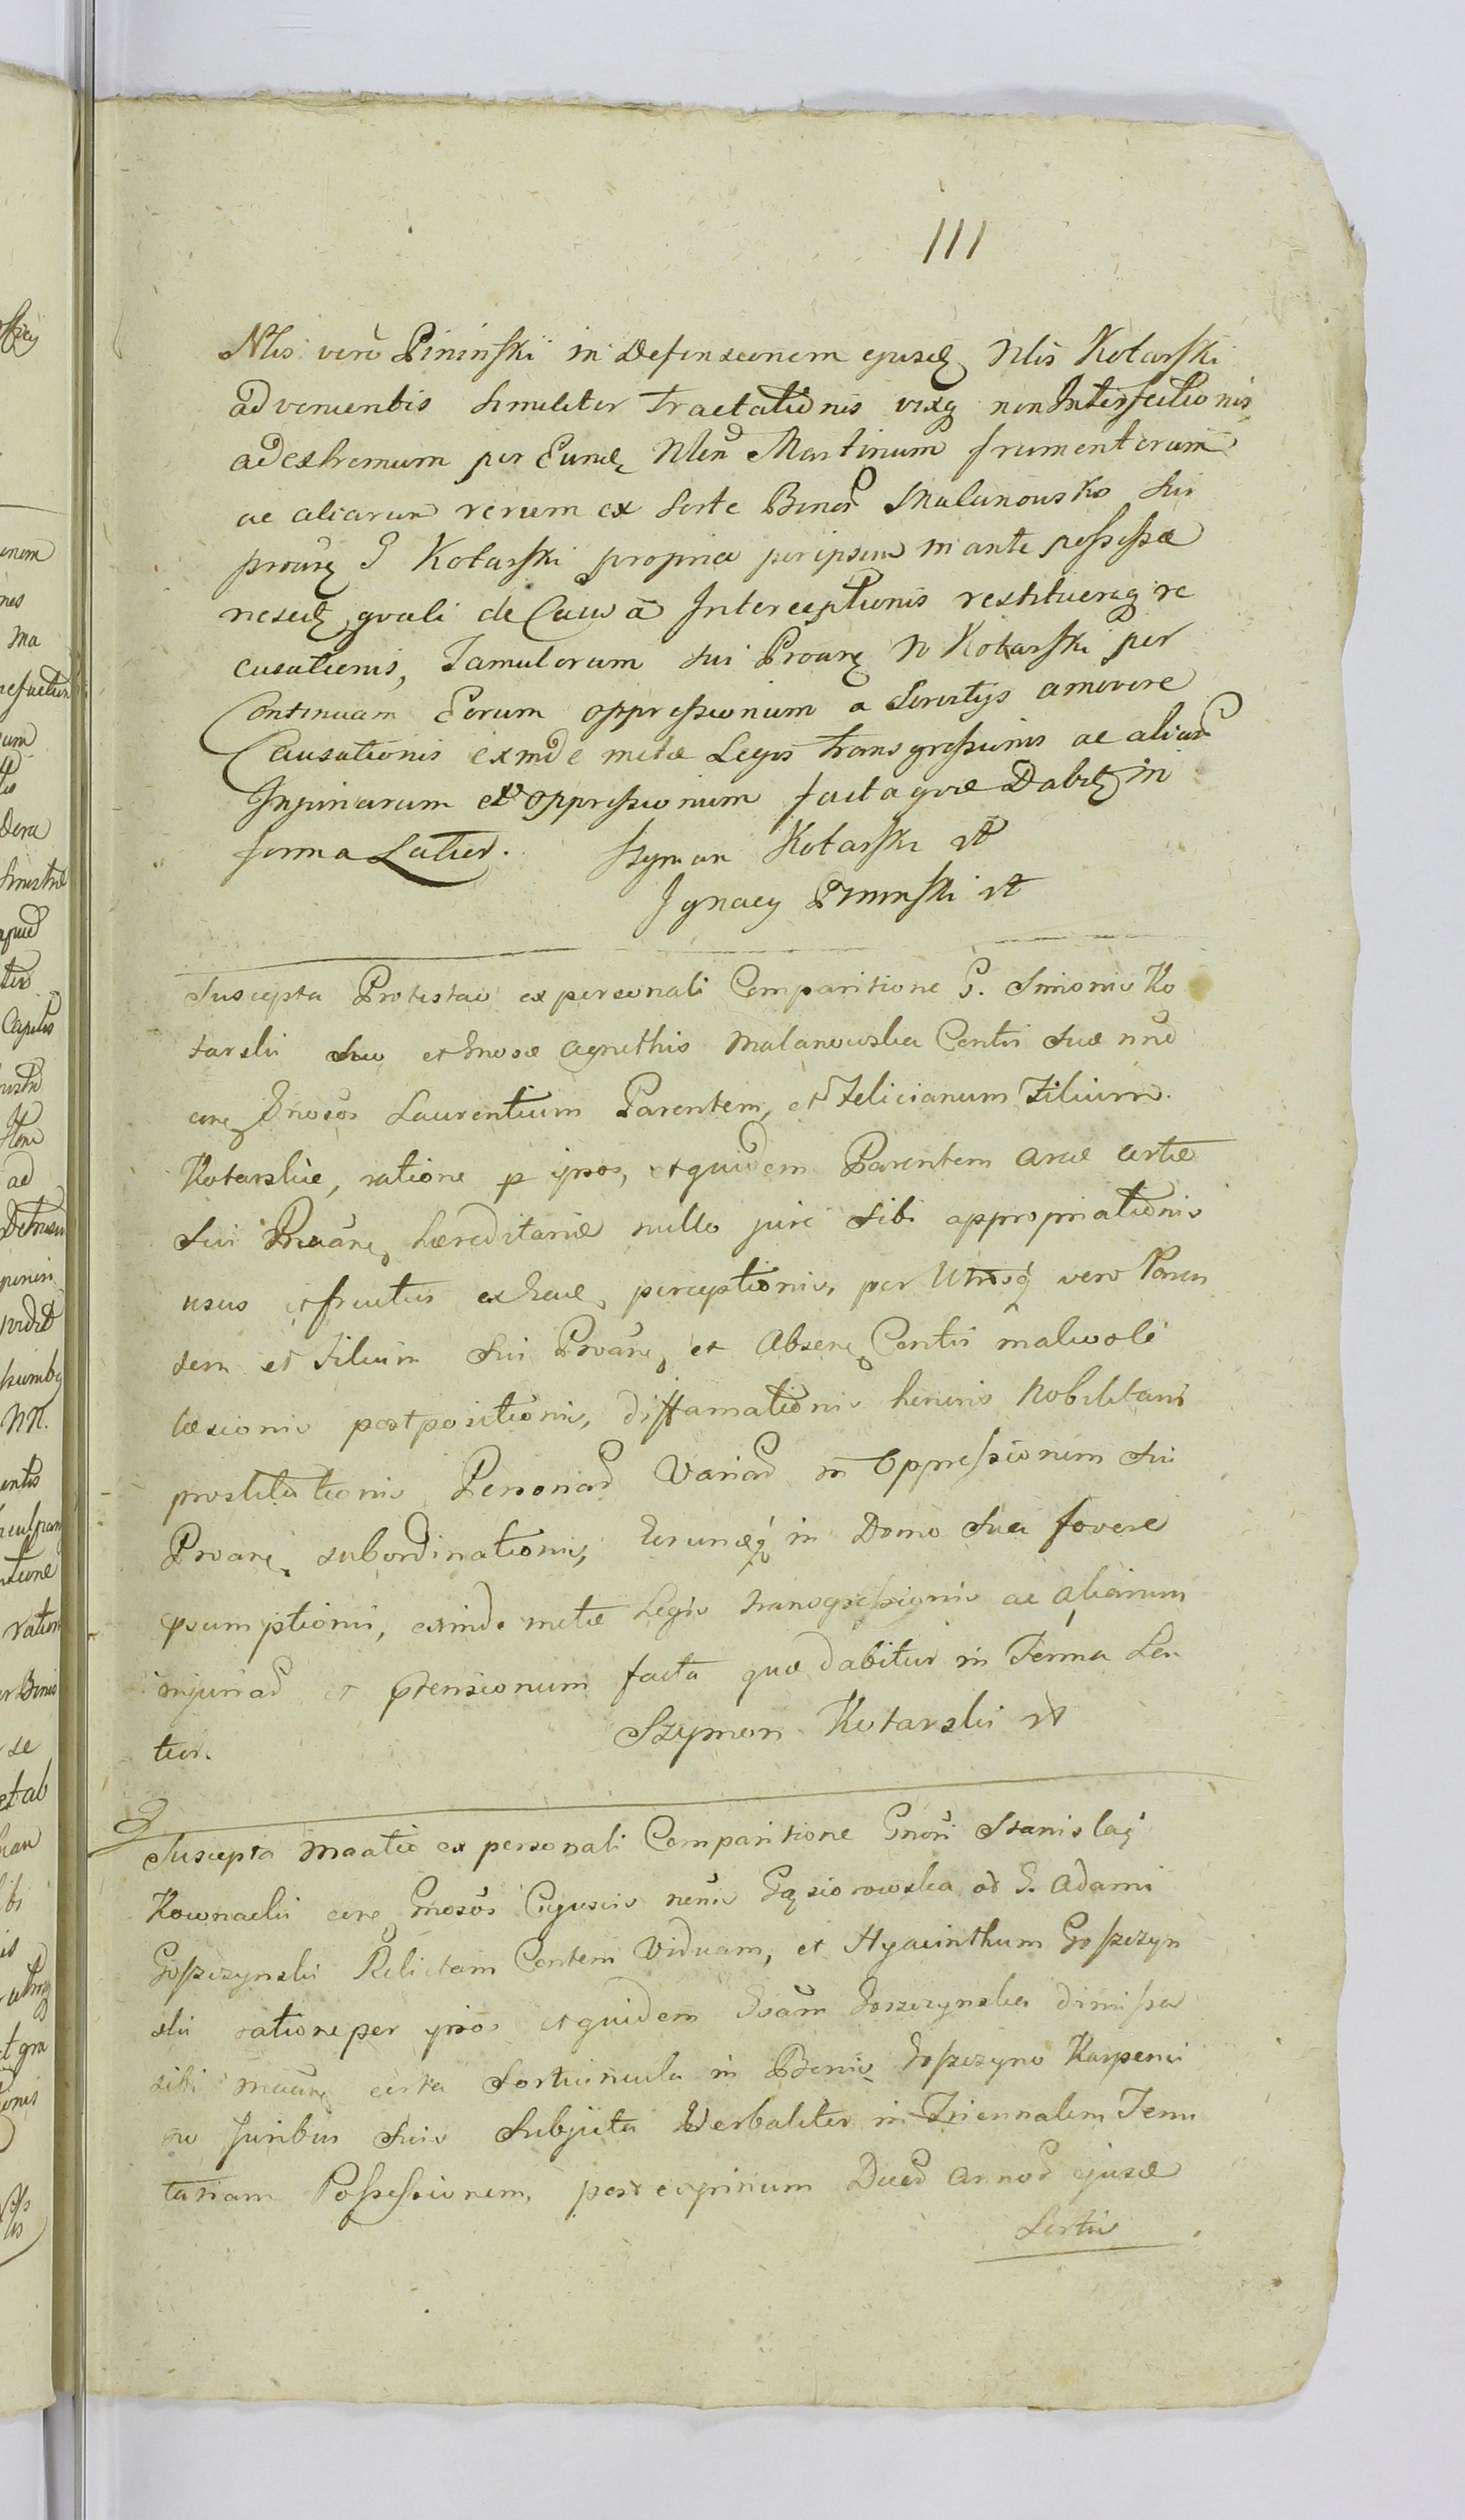 111
Nlis verò Pininski in Defensionem ejusdę Nlis Kotarski
advenientis simuliter tractationis vixq non Interfectionis,
ad extremum per Eundę Nlen Martinum frumentorum
ac aliarum rerum ex Sorte Bonor Malanowsko sui
proarę G Kotarski propria per ipsum in ante possessa
nescitę quali de Causa Interceptionis restituereq re
cusationis, Famulorum sui Proarę N Kotarski per
Continuam Eorum oppressionum a Servitys amovere
Causationis exinde metæ Legis transgressionis ac aliar
Injuriarum et oppressionum facta quæ Dabitę in
forma Latior. Szyman Kotarski
Ignacy Pininski
Suscepta Protestao ex personali Comparitione G. Simonis Ko
tarski suo et Gnosæ Agnethis Malanowska Contis suæ nno
cirę Gnosos Laurentium Parentem, et Felicianum Filium
Kotarskie, ratione p ipsos, et quidem Parentem areæ certæ
sui Proarę hæreditariæ nullo jure sibi appropriationis
usus et fructus ex perceptionis, per Utrosq vero Paren
tem et Filium sui Proarę et Absenę Contis malivolè
læsionis postpositionis, diffamationis honoris Nobilitaris
prostitutionis Personar Variar in Oppressionem sui
Proarę subordinationis, Earumdq in Domo sua fovere
psumptionis, exinde metæ Legis transgressionis ac aliarum
injuriar et ptensionum facta quæ dabitur in Forma La
tior. Szymon Kotarski
Suscepta Maatio ex personali Comparitione Gnosi Stanislai
Kownacki cirę Gnosos Gąsiorowska od G. Adami
Goszczynski Relictam Contem Viduam, et Hyacinthum Goszczyn
ski ratione per ipsos et quidem Gosam Goszczynska dimissa
sibi maarę certa Sortiuncula in Bonis Goszczyno Karpeni
no Juribus suis Subjecta Verbaliter in Triennalem Tenu
tariam Possessionem, post expirium Duor Annor ejusd
Sortis